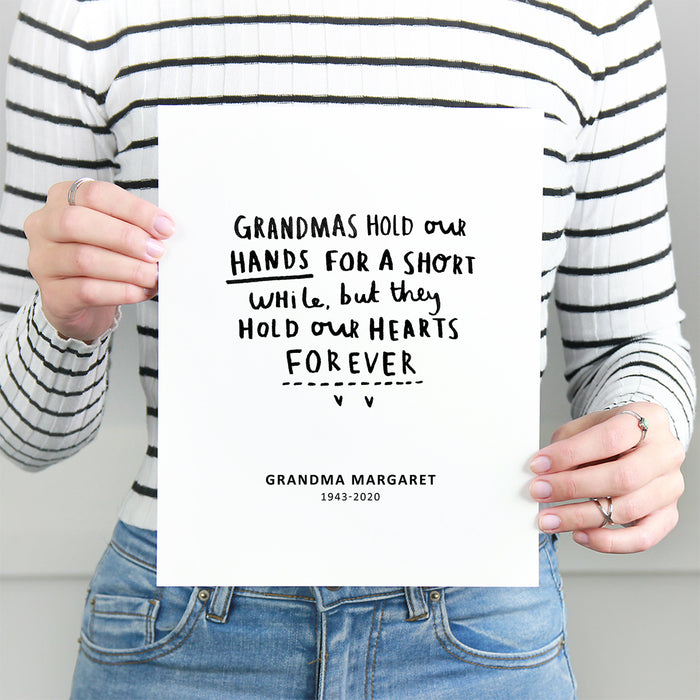 GRANDMAS HOLD our
HANDS FOR A SHORT
WHiLe, but they
HOLD our HEARTS
FOREVER
GRANDMA MARGARET
1943-2020